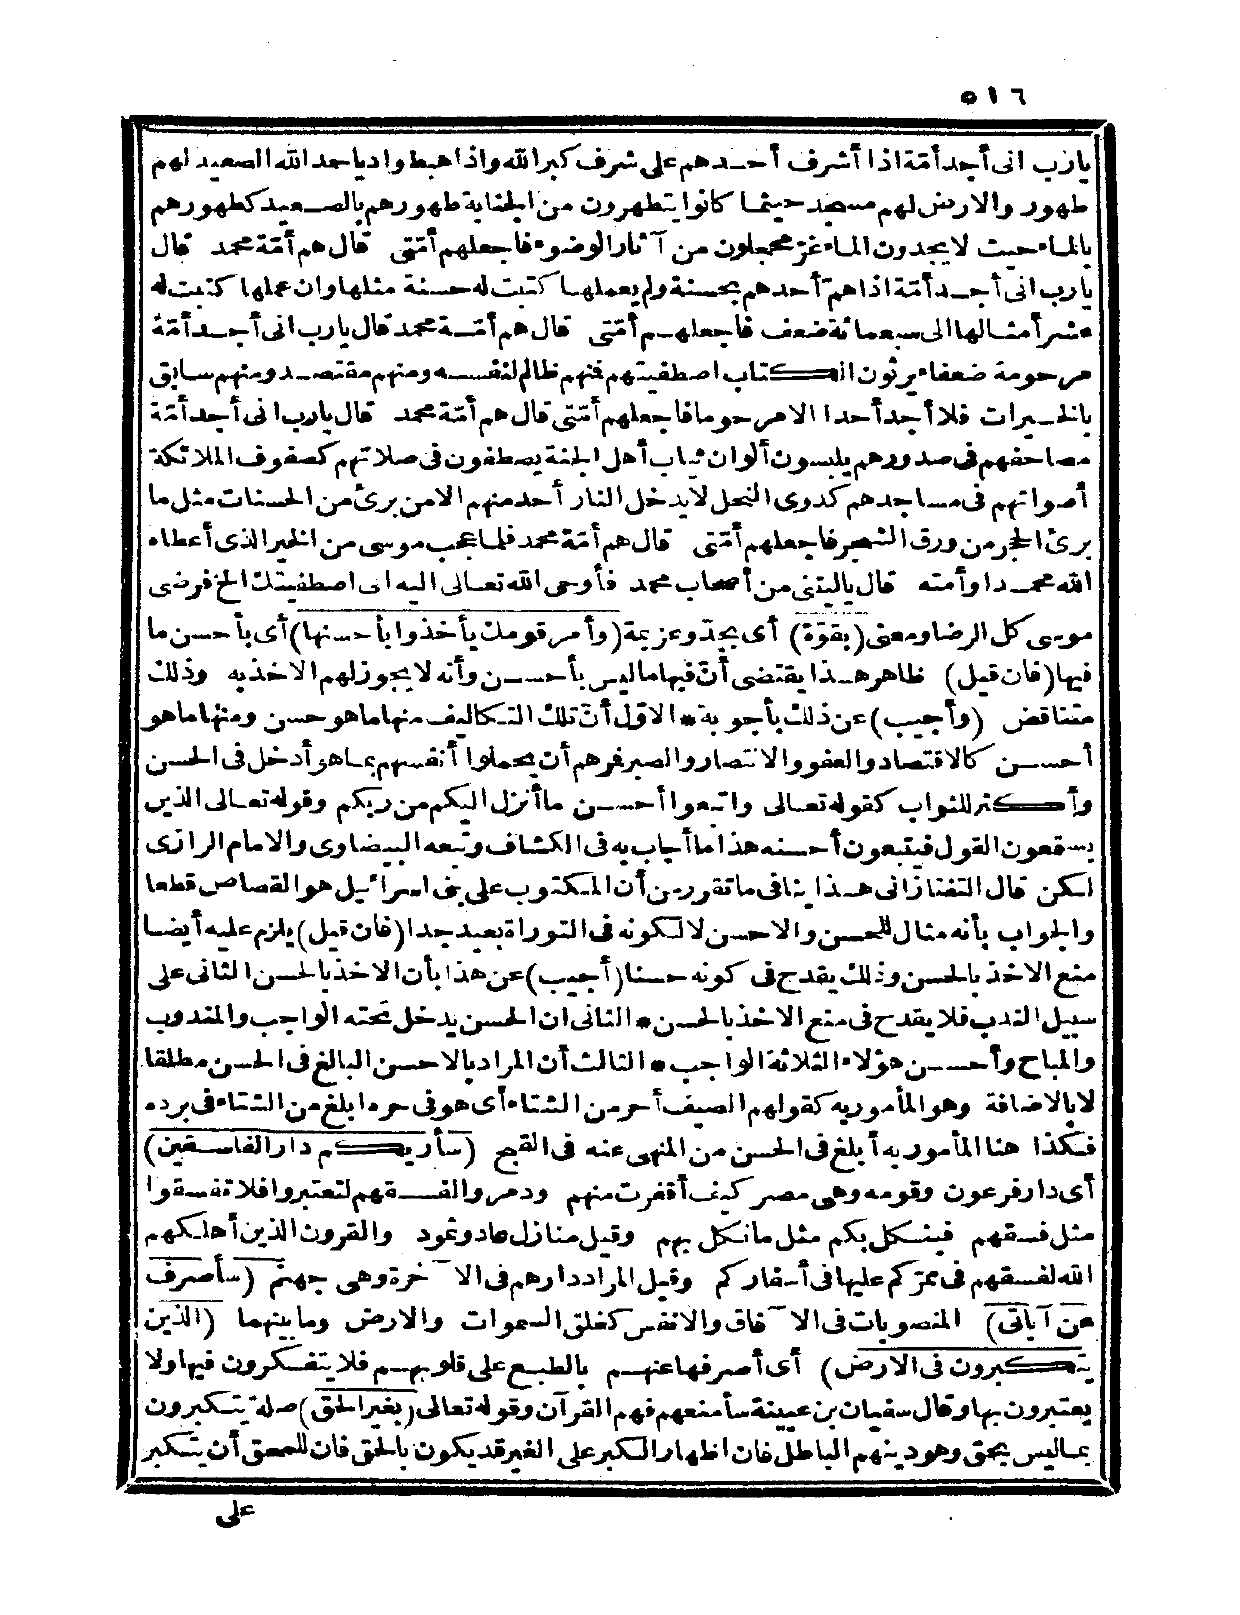 ٥١٦
يارب انى أجد أمّة اذا أشرف أحدهم على شرف كبرالله واذا هبط واديا حمد الله الصعيد لهم
طهور والارض لهم مسجد حيثما كانوا يتطهرون من الجنابة طهورهم بالصعيد كطهورهم
بالماء حيث لا يجدون الماء غرّ محجلون من آثار الوضوء فاجعلهم أمّتى قال هم أمّة محمد قال
يارب انى أجد أمّة اذا همّ أحدهم بحسنة ولم يعملها كتبت له حسنة مثلها وان عملها كتبت له
عشر أمثالها الى سبعمائة ضعف فاجعلهم أمّتى قال هم أمّة محمد قال يارب انى أجد أمّة
مرحومة ضعفاء يرثون الكتاب اصطفيتهم فمنهم ظالم لنفسه ومنهم مقتصد ومنهم سابق
بالخيرات فلا أجد أحدا الا مرحوما فاجعلهم أمّتى قال هم أمّة محمد قال يارب انى أجد أمّة
مصاحفهم فى صدورهم يلبسون ألوان ثياب أهل الجنة يصطفون فى صلاتهم كصفوف الملائكة
أصواتهم فى مساجدهم كدوى النحل لا يدخل النار أحد منهم الا من برئ من الحسنات مثل ما
برئ الحجر من ورق الشجر فاجعلهم أمّتى قال هم أمّة محمد فلما عجب موسى من الخير الذى أعطاه
الله محمدا وأمته قال ياليتنى من أصحاب محمد فأوحى الله تعالى اليه انى اصطفيتك الخ فرضى
موسى كل الرضا ومعنى (بقوّة) أى بجدّ وعزيمة (وأمر قومك يأخذوا بأحسنها) أى بأحسن ما
فيها (فان قيل) ظاهر هذا يقتضى أنّ فيها ما ليس بأحسن وأنه لا يجوز لهم الاخذ به وذلك
متناقض (وأجيب) عن ذلك بأجوبة * الاوّل أنّ تلك التكاليف منها ما هو حسن ومنها ما هو
أحسن كالاقتصاد والعفو والانتصار والصبر فرهم أن يحملوا أنفسهم بما هو أدخل فى الحسن
وأكثر للثواب كقوله تعالى واتبعوا أحسن ما أنزل اليكم من ربكم وقوله تعالى الذين
يستمعون القول فيتبعون أحسنه هذا ما أجاب به فى الكشاف وتبعه البيضاوى والامام الرازى
لكن قال التفتازانى هذا ينافى ما تقرر من أن المكتوب على بنى اسرائيل هو القصاص قطعا
والجواب بأنه مثال للحسن والاحسن لا لكونه فى التوراة بعيد جدا (فان قيل) يلزم عليه أيضا
منع الاخذ بالحسن وذلك يقدح فى كونه حسنا (أجيب) عن هذا بأن الاخذ بالحسن الثانى على
سبيل الندب فلا يقدح فى منع الاخذ بالحسن * الثانى ان الحسن يدخل تحته الواجب والمندوب
والمباح وأحسن هؤلاء الثلاثة الواجب * الثالث أن المراد بالاحسن البالغ فى الحسن مطلقا
لا بالاضافة وهو المأمور به كقولهم الصيف أحر من الشتاء أى هو فى حره ابلغ من الشتاء فى برده
فكذا هنا المأمور به أبلغ فى الحسن من المنهى عنه فى القبح (سأريكم دار الفاسقين)
أى دار فرعون وقومه وهى مصر كيف أقفرت منهم ودمروا لفسقهم لتعتبروا فلا تفسقوا
مثل فسقهم فينكل بكم مثل ما نكل بهم وقيل منازل عاد وثمود والقرون الذين أهلكهم
الله لفسقهم فى ممرّكم عليها فى أسفاركم وقيل المراد دارهم فى الآخرة وهى جهنم (سأصرف
عن آياتى) المنصوبات فى الآفاق والانفس كخلق السموات والارض وما بينهما (الذين
يتكبرون فى الارض) أى أصرفها عنهم بالطبع على قلوبهم فلا يتفكرون فيها ولا
يعتبرون بها وقال سفيان بن عيينة سأمنعهم فهم القرآن وقوله تعالى (بغير الحق) صلة يتكبرون
بما ليس بحق وهو دينهم الباطل فان اظهار الكبر على الغير قد يكون بالحق فان للمحق أن يتكبر
على